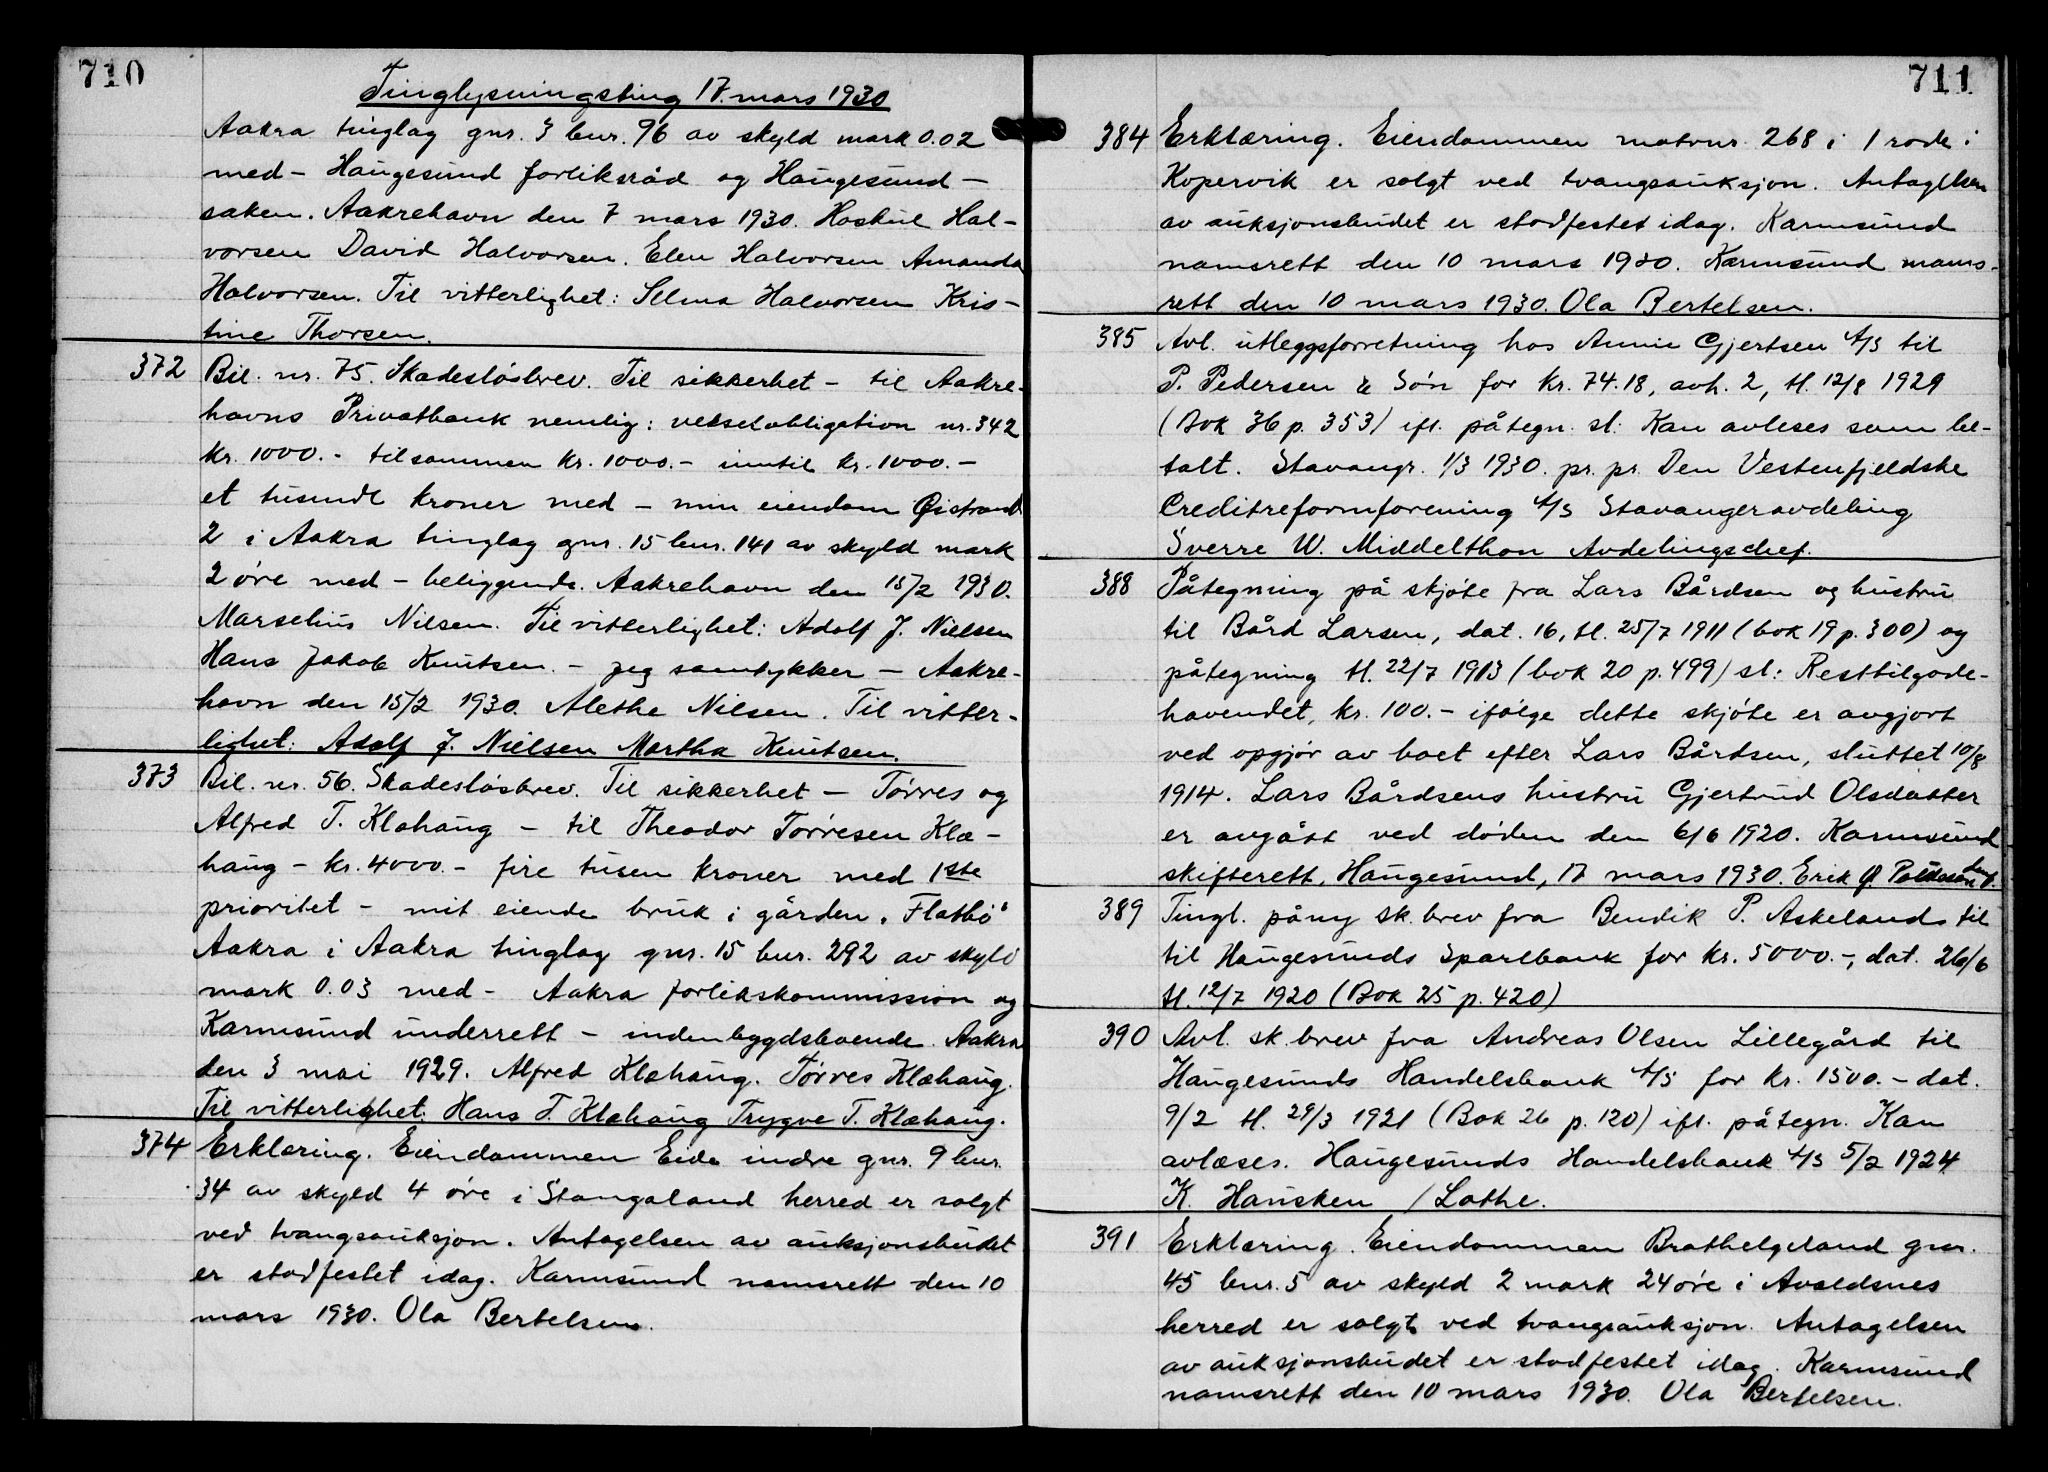 710
Tinglysningsting 17. mars 1930
Aakra tinglag gnr. 3 bnr. 96 av skyld mark 0.02
med - Haugesund forliksråd og Haugesund -
saken. Aakrehavn den 7 mars 1930. Hal-
vorsen David Halvorsen. Elen Halvorsen Amanda
Halvorsen. Til vitterlighet: Selma Halvorsen Kris-
tine Thorsen.
372 Bil. nr. 75. Skadesløsbrev. Til sikkerhet - til Aakre-
havns Privatbank nemlig: vekselobligation nr. 342
kr. 1000.- tilsammen kr. 1000.- inntil kr. 1000.-
et tusinde kroner med - min eiendom Øistrand
2 i Aakra tinglag gnr. 15 bnr. 141 av skyld mark
2 øre med - beliggende. Aakrehavn den 15/2 1930.
Marselius Nilsen. Til vitterlighet: Adolf J. Nielsen
Hans Jakob Knutsen. - jeg samtykker - Aakre-
havn den 15/2 1930. Alethe Nilsen. Til vitter-
lighet: Adolf J. Nielsen Martha Knutsen.
373 Bil. nr. 56. Skadesløsbrev. Til sikkerhet - Tørres og
Alfred T. Klæhaug - til Theodor Tørresen Klæ-
haug - kr. 4000.- fire tusen kroner med 1ste
prioritet - mit eiende bruk i gården "Flatbø"
Aakra i Aakra tinglag gnr. 15 bnr. 292 av skyld
mark 0.03 med - Aakra forlikskommission og
Karmsund underrett - indenbygdsboende. Aakra
den 3 mai 1929. Alfred Klæhaug. Tørres Klæhaug.
Til vitterlighet: Hans T. Klæhaug Trygve T. Klæhaug.
374 Erklæring. Eiendommen Eide indre gnr. 9 bnr.
34 av skyld 4 øre i Stangaland herred er solgt
ved tvangsauksjon. Antagelsen av auksjonsbudet
er stadfestet idag. Karmsund namsrett den 10
mars 1930. Ola Bertelsen.
711
384 Erklæring. Eiendommen matrnr. 268 i 1 rode i
Kopervik er solgt ved tvangsauksjon. Antagelsen
av auksjonsbudet er stadfestet idag. Karmsund
namsrett den 10 mars 1930. Karmsund nams-
rett den 10 mars 1930. Ola Bertelsen.
385 Avl. utleggsforretning hos Annie Gjertsen A/S til
P. Pedersen & Søn for kr. 74.18, avh. 2, tl. 12/8 1929
(Bok 36 p. 353) ifl. påtegn. sl: Kan avleses som be-
talt. Stavangr. 1/3 1930. pr. pr. Den Vestenfjeldske
Creditreformforening A/S Stavangeravdeling
Sverre W. Middelthon Avdelingschef.
388 Påtegning på skjøte fra Lars Bårdsen og hustru
til Bård Larsen, dat. 16, tl. 25/7 1911 (bok 19 p. 300) og
påtegning tl. 22/7 1913 (bok 20 p. 499) sl: Resttilgode-
havendet, kr. 100.- ifølge dette skjøte er avgjort
ved opgjør av boet efter Lars Bårdsen, sluttet 10/8
1914. Lars Bårdsens hustru Gjertrud Olsdatter
er avgått ved døden den 6/6 1920. Karmsund
skifterett, Haugesund, 17 mars 1930. Erik Ø.
389 Tingl. påny sk. brev fra Bendik P. Askeland til
til Haugesunds Sparebank for kr. 5000.-, dat. 26/6
tl. 12/7 1920 (Bok 25 p. 420)
390 Avl. sk. brev fra Andreas Olsen Lillegård til
Haugesunds Handelsbank A/S for kr. 1500.- dat.
9/2 tl. 29/3 1921 (Bok 26 p. 120) ifl. påtegn. Kan
avlæses. Haugesunds Handelsbank A/S 5/2 1924.
K. Hausken / Lothe.
391 Erklæring. Eiendommen Brathelgeland gnr.
45 bnr. 5 av skyld 2 mark 24 øre i Avaldsnes
herred er solgt ved tvangsauksjon. Antagelsen
av auksjonsbudet er stadfestet idag. Karmsund
namsrett den 10 mars 1930. Ola Bertelsen.